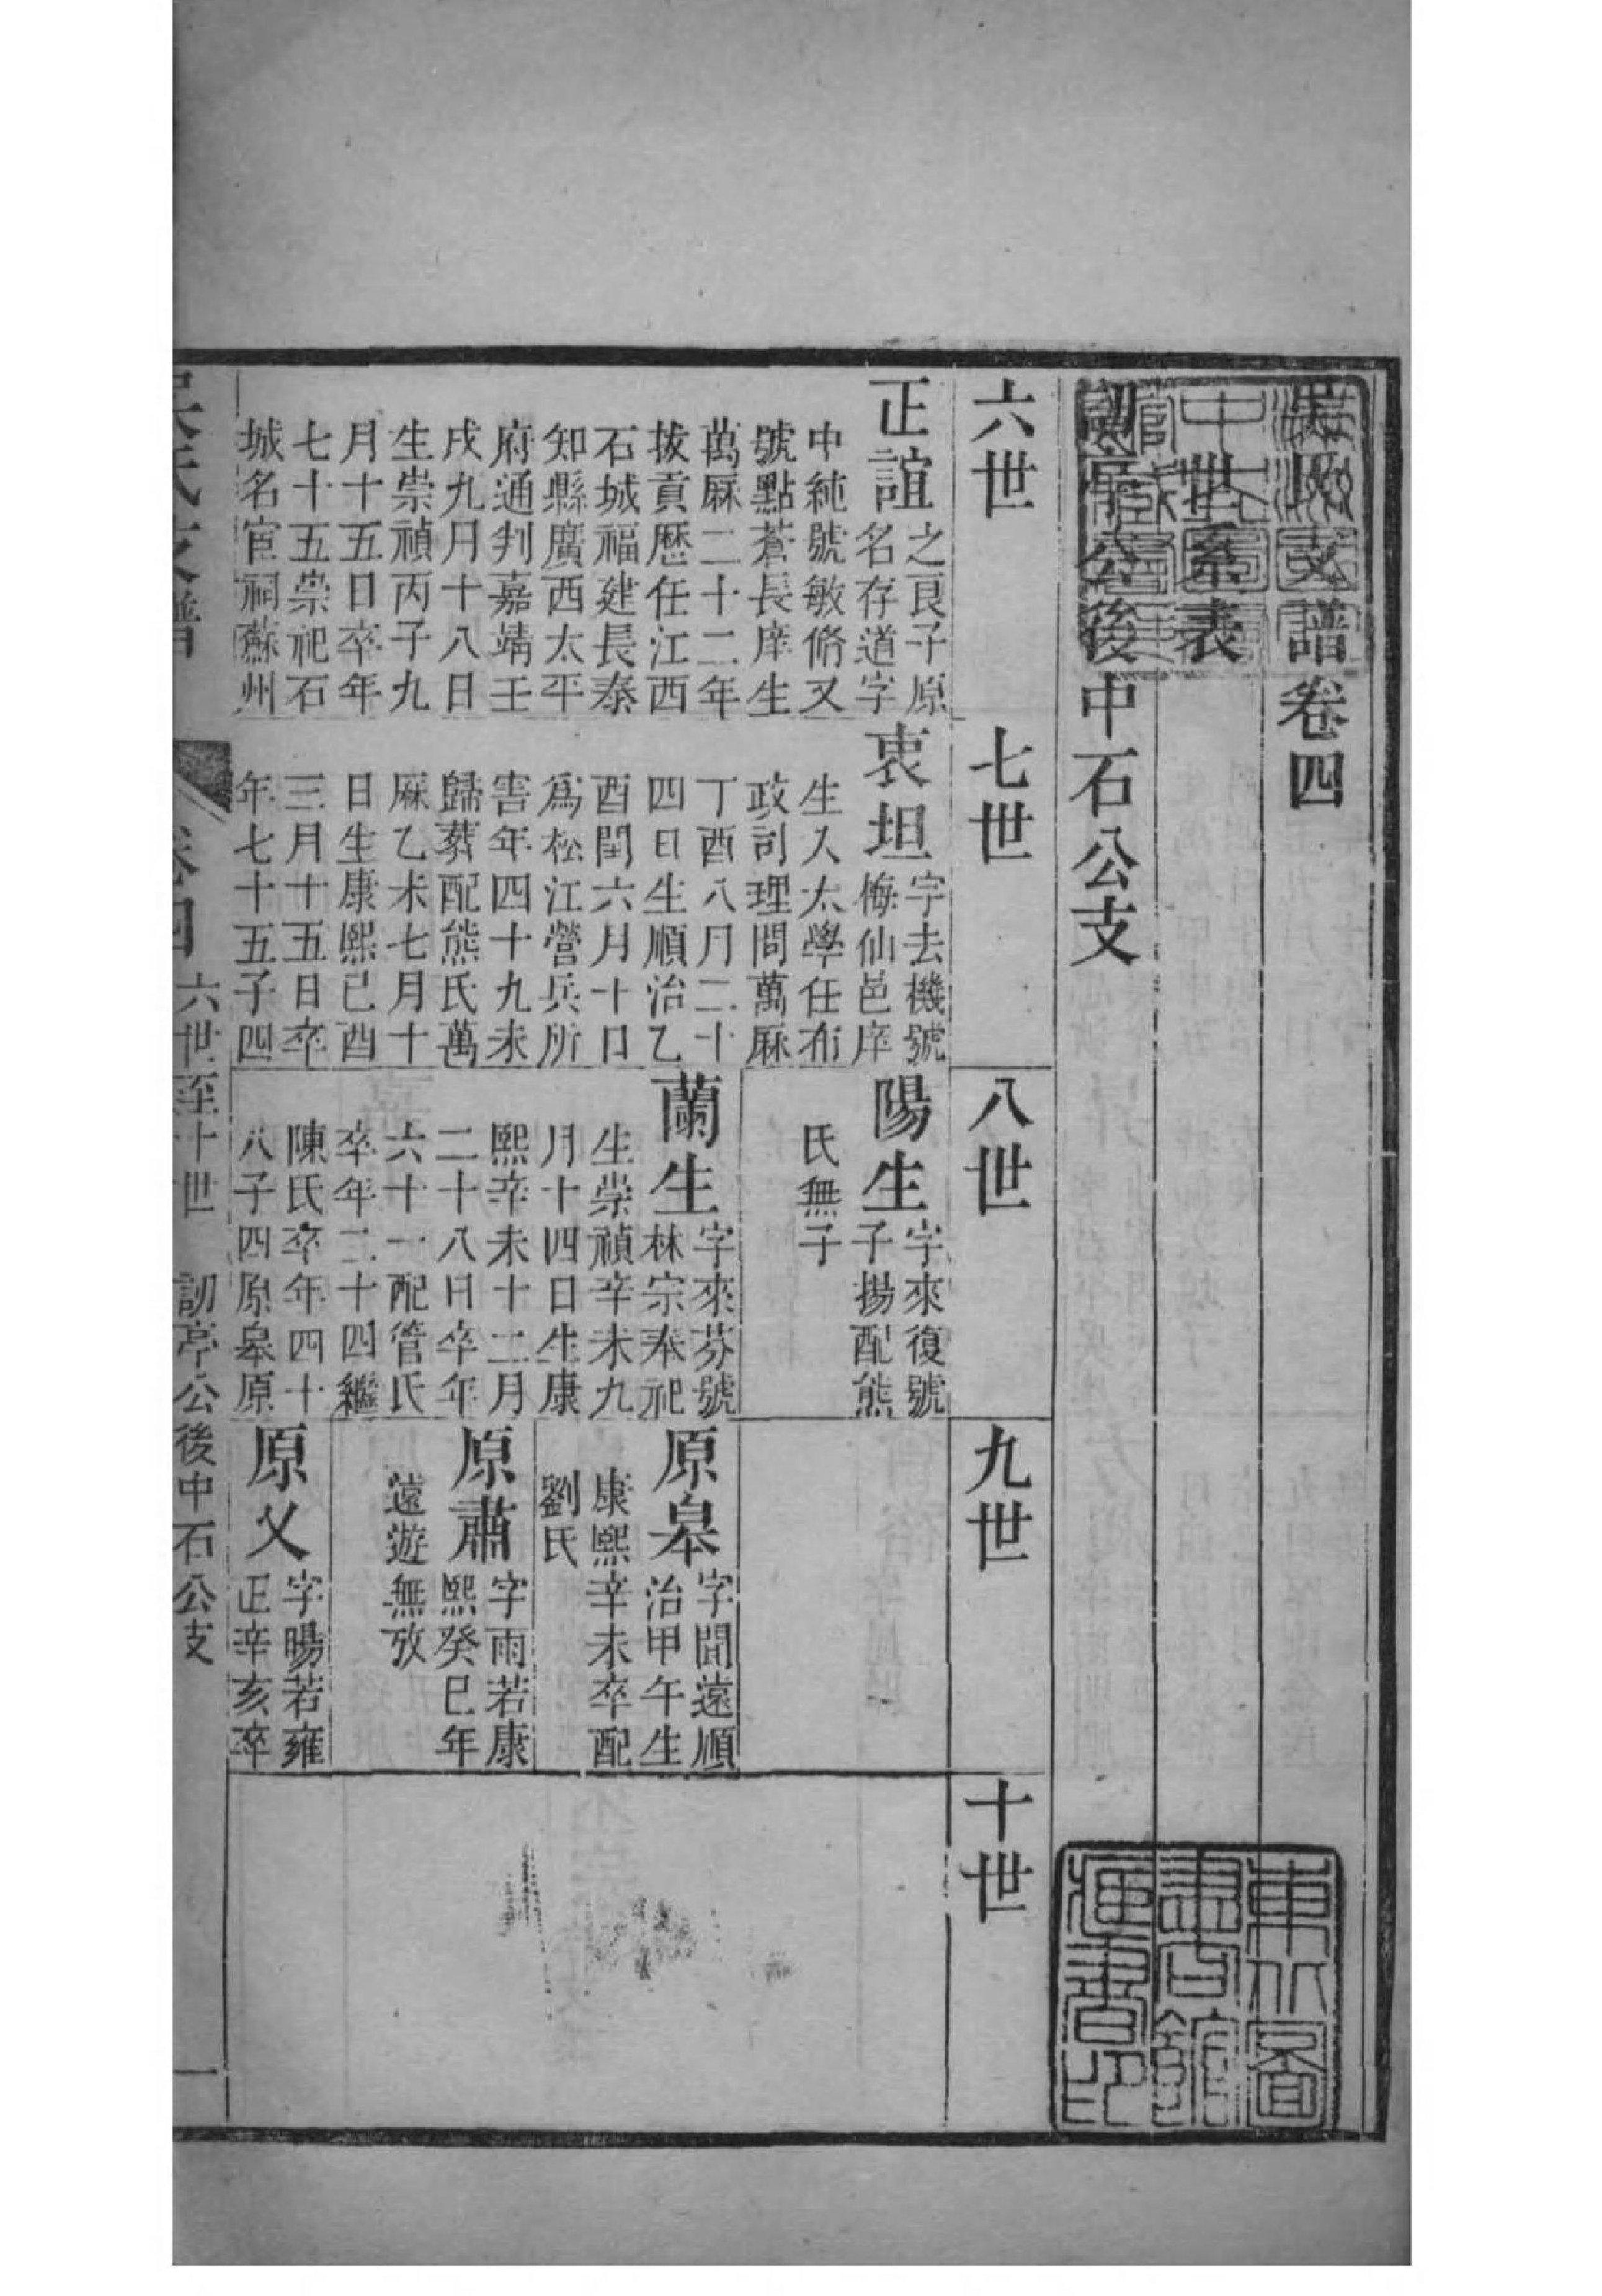 吳氏支譜卷四
世系表
訒亭公後中石公支
六世
正誼
之良子原
名存道字
中純號敏脩又
號點蒼長庠生
萬厤二十二年
拔貢歷任江西
石城福建長泰
知縣廣西太平
府通判嘉靖壬
戌九月十八日
生崇禎丙子九
月十五日卒年
七十五崇祀石
城名宦祠蘇州
七世
衷坦
字去機號
悔仙邑庠
生入太學任布
政司理問萬厤
丁酉八月二十
四日生順治乙
酉閏六月十日
爲松江營兵所
害年四十九未
歸葬配熊氏萬
厤乙未七月十
日生康熙己酉
三月十五日卒
年七十五子四
八世
陽生
字來復號
子揚配熊
氏無子
蘭生
字來芬號
林宗奉祀
生崇禎辛未九
月十四日生康
熙辛未十二月
二十八日卒年
六十一配管氏
卒年二十四繼
陳氏卒年四十
八子四原皋原
九世
原皋
字聞遠順
治甲午生
康熙辛未卒配
劉氏
原肅
字雨若康
熙癸巳年
遠遊無攷
原乂
字暘若雍
正辛亥卒
十世
吳氏支譜
卷四
六世至十世
訒亭公後中石公支
一
東北圖
書館
所藏書印